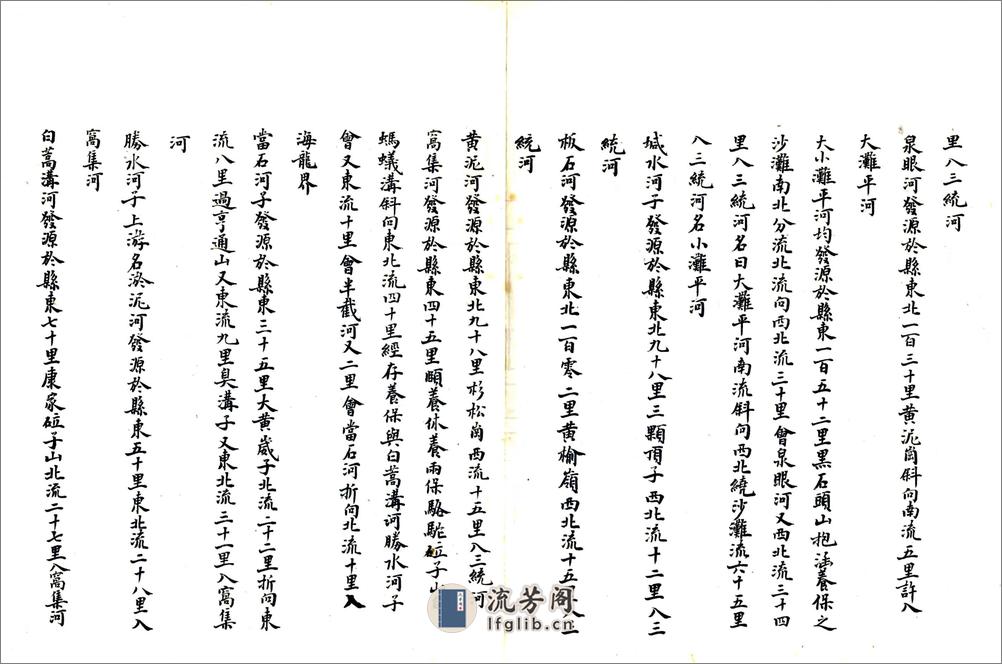 里入三統河
泉眼河發源於縣東北一百三十里黄泥崗斜向南流五里許入
大灘平河
大小灘平河均發源於縣東一百五十二里黑石頭山抱涵養保之
沙灘南北分流北流向西北流三十里會泉眼河又西北流三十四
里入三統河名曰大灘平河南流斜向西北繞沙灘流六十五里
入三統河名小灘平河
堿水河子發源於縣東北九十八里三顆頂子西北流十二里入三
統河
板石河發源於縣東北一百零二里黄榆嶺西北流十五
統河
黄泥河發源於縣東北九十八里杉松崗西流十五里入三統河
窩集河發源於縣東四十五里頤養休養兩保駱駝砬子山
螞蟻溝斜向東北流四十里經存養保與白蒿溝河勝水河子
會又東流十里會半截河又二里會當石河折向北流十里入
海龍界
當石河子發源於縣東三十五里大黄嵗子北流二十二里折向東
流八里過亨通山又東流九里臭溝子又東北流三十一里入窩集
河
勝水河子上游名淤泥河發源於縣東五十里東北流二十八里入
窩集河
白蒿溝河發源於縣東七十里康家砬子山北流二十七里入窩集河
流芳阁
lfglib.cn